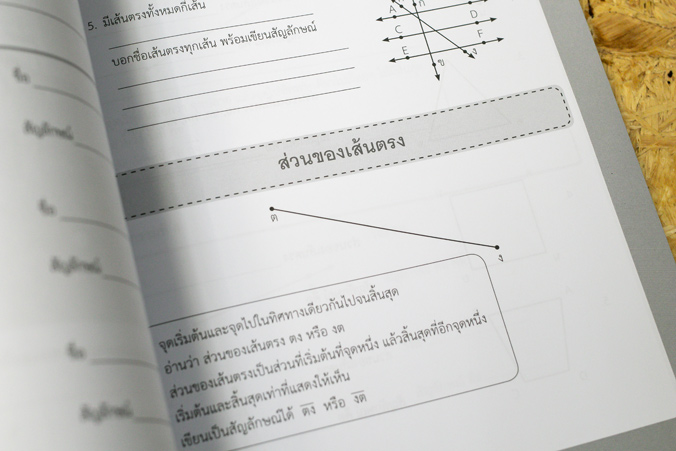 5. มีเส้นตรงทั้งหมดกี่เส้น
บอกชื่อเส้นตรงทุกเส้น พร้อมเขียนสัญลักษณ์
A
C D
E F
ข ง
ส่วนของเส้นตรง
ต
ง
จุดเริ่มต้นและจุดไปในทิศทางเดียวกันไปจนสิ้นสุด
อ่านว่า ส่วนของเส้นตรง ตง หรือ งต
ส่วนของเส้นตรงเป็นส่วนที่เริ่มต้นที่จุดหนึ่ง แล้วสิ้นสุดที่อีกจุดหนึ่ง
เริ่มต้นและสิ้นสุดเท่าที่แสดงให้เห็น
เขียนเป็นสัญลักษณ์ได้ ตง หรือ งต
ชื่อ
สัญลักษณ์
ชื่อ
สัญลักษณ์
ชื่อ
สัญลักษณ์